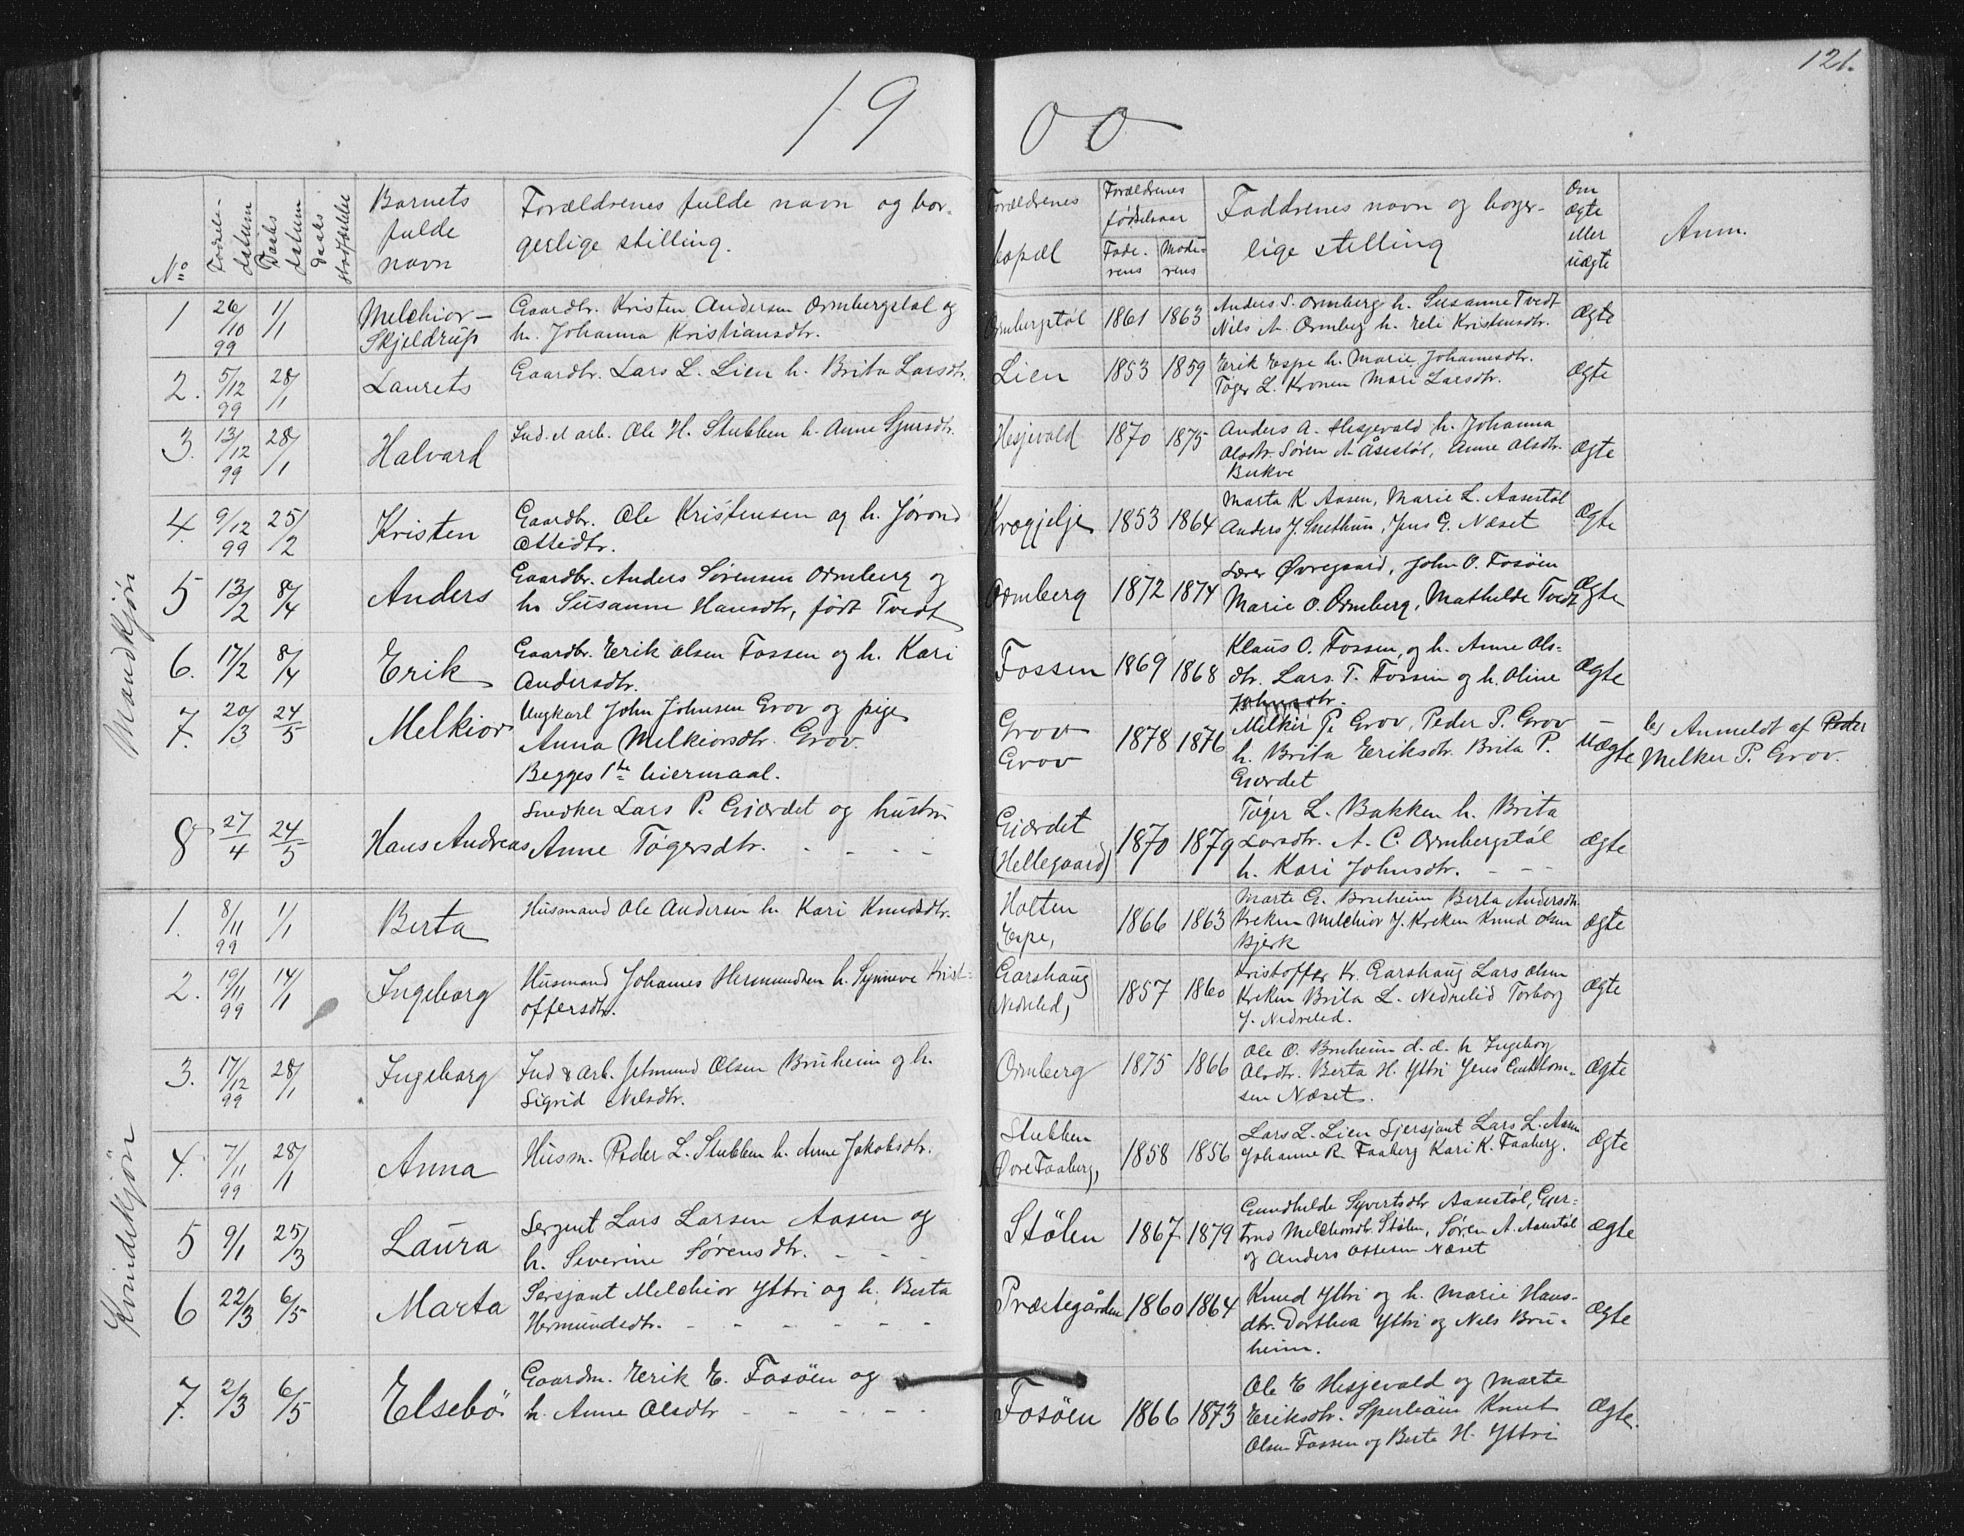 19 00
121.
No
Fødsels-
datum
Daabs
datum
Daabs
stadfæstet
Barnets
fulde
navn
Forældrenes fulde navn og bor-
gerlige stilling.
Forældrenes
bopæl
Forældrenes
fødselsaar
Fade-
rens
Mode-
rens
Faddrenes navn og borger-
lige stilling
Om
ægte
eller
uægte
Anm.
Mandkjøn
1 26/10 99 1/1 Melchior- Skjeldrup
Gaardbr. Kristen Andersen Ormbergstøl og
h. Johanna Kristiansdtr.
Ormbergstøl 1861 1863
Anders S. Ormberg h. Susanne Tvedt
Nils A. Ormberg h. Eli Kristensdtr.
Ægte
2. 5/12 99 28/1 Laurets
Gaardbr. Lars L. Lien h. Brita Larsdtr.
Lien 1853 1859
Erik Espe h. Marie Johannesdtr.
Tøger L. Kronen Mari Larsdtr.
Ægte
3. 13/12 99 28/1 Halvard
Ind. d arb. Ole H. Stubben h. Anne Sjursdtr.
Hesjevald 1870 1875
Anders A. Hesjevald h. Johanna
Olsdtr. Søren A Åsestøl, Anne Olsdtr.
Bukve
Ægte
4. 9/12 99 25/2 Kristen
Gaardbr. Ole Kristensen og h. Jørond
Ottesdtr.
Kragjelje 1853 1864
Marta K Aasen, Marie L. Aasestøl
Anders J. Snethun, Jens G. Næset
Ægte
5 13/2 8/4 Anders
Gaardbr. Anders Sørensen Ormberg og
h. Susanne Hansdtr, født Tvedt
Ormberg 1872 1874
Lærer Øvregaard, John O. Fosøen
Marie O. Ormberg, Mathilde Tvedt
Ægte
6. 17/2 8/4 Erik
Gaardbr. Erik Olsen Fossen og h. Kari
Andersdtr.
Fossen 1869 1868
Klaus O. Fossen, og h. Anne Ols-
dtr. Lars T. Fossen og h. Oline
Johnsdtr.
Ægte
7. 20/3 24/5 Melkior
Ungkarl John Johnsen Grov og pige
Anna Melkiorsdtr. Grov.
Begges 1ste leiermaal.
Grov
Grov
1878 1876
Melkir P. Grov, Peder P. Grov
h. Brita Eriksdtr. Brita P.
Gjærdet
-
Uægte
Anmeldt af Peder
Melker P. Grov.
8 27/4 24/5 Hans Andreas
Snedker Lars P. Gjærdet og hustru
Anne Tøgersdtr. - - - -
Gjærdet
(Hellegaard)
1870 1879
Tøger L. Bakken h. Brita
Larsdtr. A. C. Ormbergstøl
h. Kari Johnsdtr. - - -
Ægte
Kvindekjøn
1. 8/11 99 1/1 Berta
Husmand Ole Andersen h. Kari Knudsdtr.
Holten
Espe,
1866 1863
Marte G. Bruheim Berta Andersdtr.
Kreken Melchior J. Kreken Knud Olsen
Bjerk
Ægte
2. 19/11 99 14/1 Ingeborg
Husmand Johannes Hermundsen h. Synneve Krist-
offersdtr.
Garshaug
Nedreled,
1857 1860
Kristoffer Kr. Garshaug Lars Olsen
Kreken Brita L. Nedrelid Torborg
J. Nedreled.
Ægte
3. 17/12 99 28/1 Ingeborg
Ind & arb. Jetmund Olsen Bruheim og h.
Sigrid Nilsdtr.
Ormberg 1875 1866
Ole O. Bruheim d. d. h Ingeborg
Olsdtr. Berta H. Yttri Jens
sen Næset.
Ægte
4. 7/11 99 28/1 Anna
Husm. Peder L. Stubben h. Anne Jakobsdtr.
Stubben
Øvre Faaberg,
1858 1856
Lars L. Lien Sjersjant Lars L. Aasen
Johanne R. Faaberg Kari K. Faaberg.
Ægte
5 9/1 25/3 Laura
Sergent Lars Larsen Aasen og
h. Severine Sørensdtr. - - -
Stølen 1867 1879
Gundhilde Syvertsdtr Aasestøl, Gjer-
trud Melchiorsdtr. Stølen, Søren A. Aasestøl
og Anders Ottesen Næset
Ægte
6 22/3 6/5 Marta
Sersjant Melchior Yttri og h. Berta
Hermundsdtr. - - - - - -
Præstegården 1860 1864
Knud Yttri og h. Marie Hans-
dtr. Dorthea Yttri og Nils Bru-
heim.
Ægte
7. 2/3 6/5 Elsebö
Gaardm. Erik E. Fosöen og
h. Anne Olsdtr - - - - -
Fosöen 1866 1873
Ole E Hesjevald og Marte
Eriksdtr. Knut
Olsen Fossen og Berte H. Yttri
Ægte.